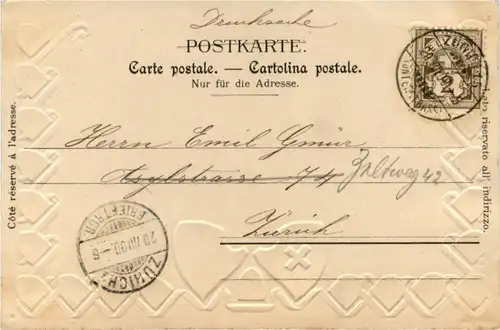 Drucksache
POSTKARTE.
Carte postale. — Cartolina postale.
Nur für die Adresse.
Côté réservé à l'adresse.
Lato riservato all' indirizzo.
Herrn Emil Gmür
Asylstrasse 74
42
Zürich
2
ZÜRICH
BRIEFTRÄGER